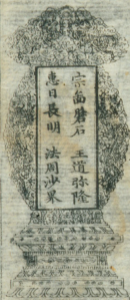 宗啚磐石　王道弥隆
惠日長明　法周沙界